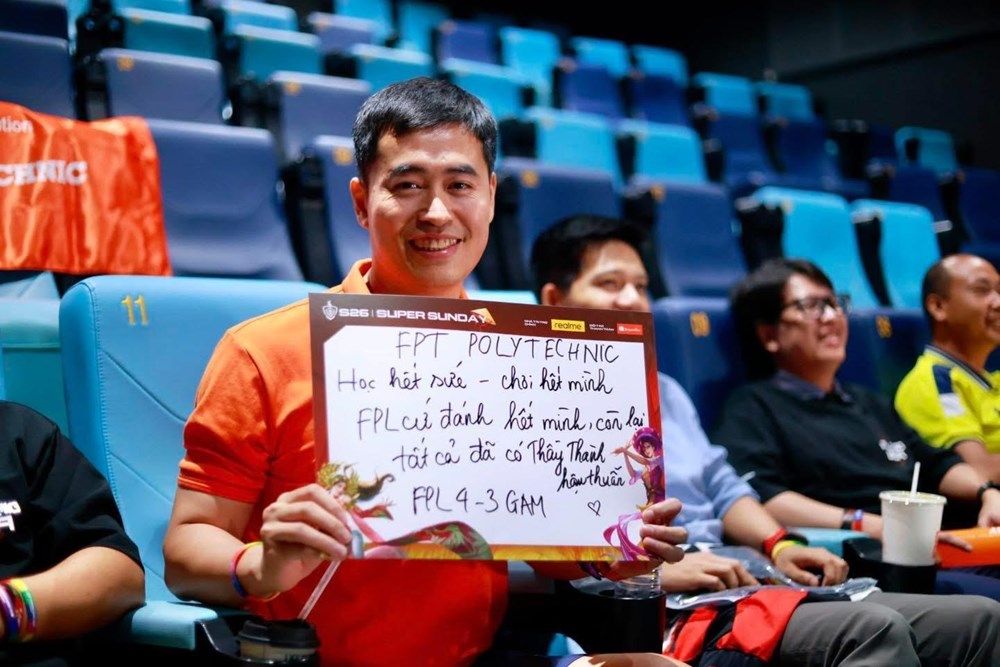 tion
CHNIC
11
S26 | SUPER SUNDAY
realme
FPT POLYTECHNIC
Học hết sức - chơi hết mình
FPL cứ đánh hết mình, còn lại
tất cả đã có Thầy Thành
hậu thuẫn
FPL 4-3 GAM